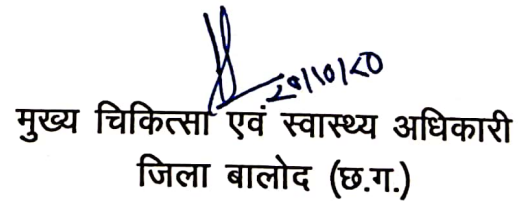 29/10/20
मुख्य चिकित्सा एवं स्वास्थ्य अधिकारी
जिला बालोद (छ.ग.)